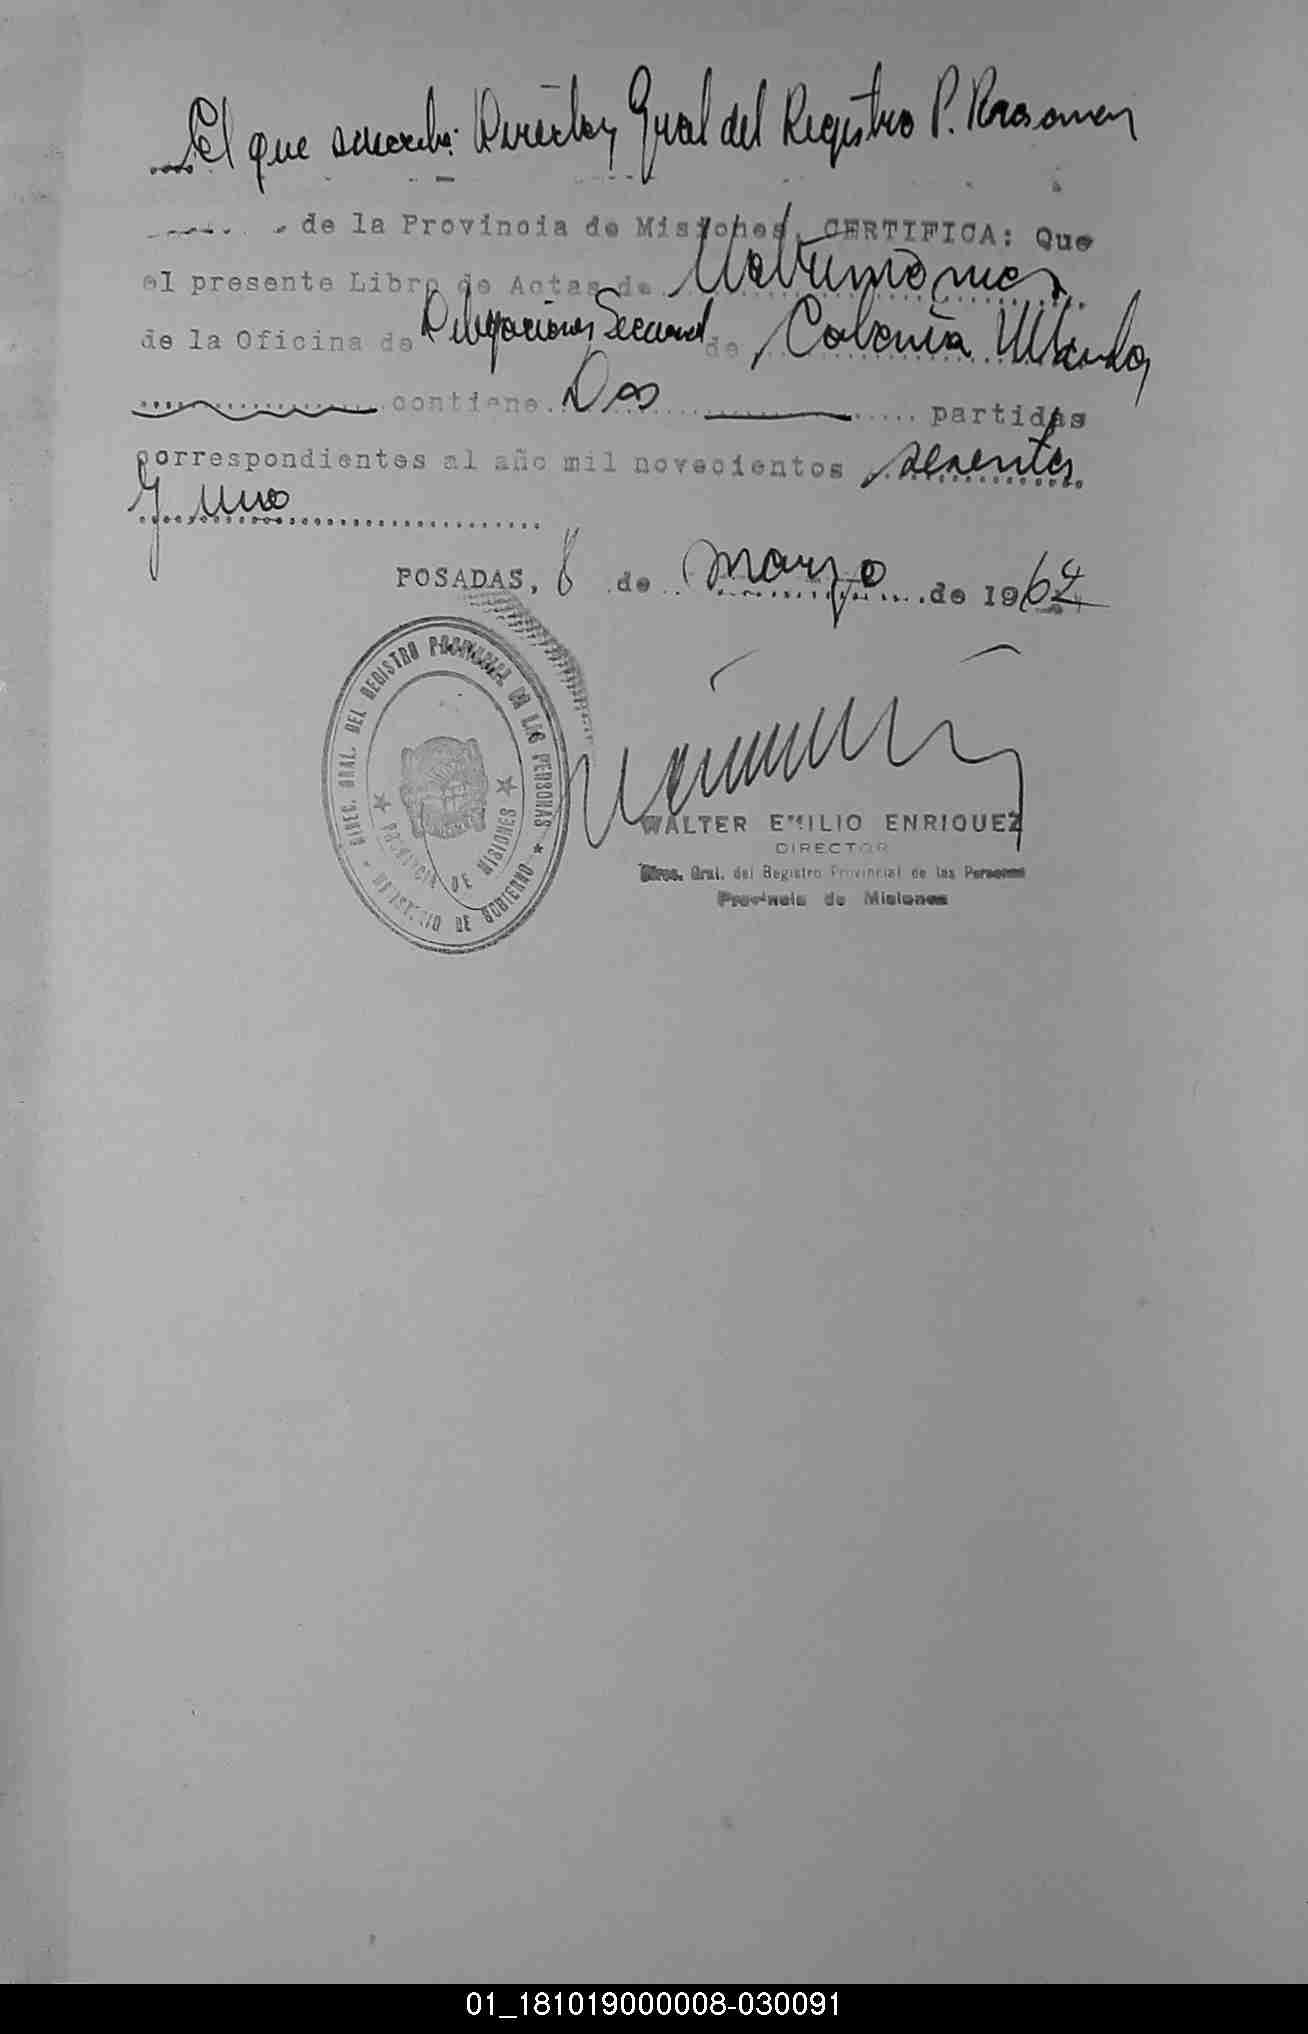 El que suscribe: Director Gral del Registro P. Personas
de la Provincia de Misiones, CERTIFICA: Que
el presente Libro de Actas de Matrimonios
de la Oficina de Delegaciones Seccional de Colonia
contiene Dos partidas
correspondientes al año mil novecientos sesenta
y uno
POSADAS, 8 de marzo de 1962
DIREC. GRAL. DEL REGISTRO PROVINCIAL DE LAS PERSONAS
MINISTERIO DE GOBIERNO
PROVINCIA DE MISIONES
WALTER EMILIO ENRIQUEZ
DIRECTOR
Direc. Gral. del Registro Provincial de las Personas
Provincia de Misiones
01_181019000008-030091